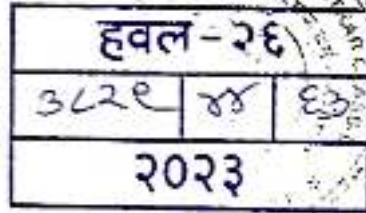 हवल-२६
३८२९ ४४ ६३
२०२३